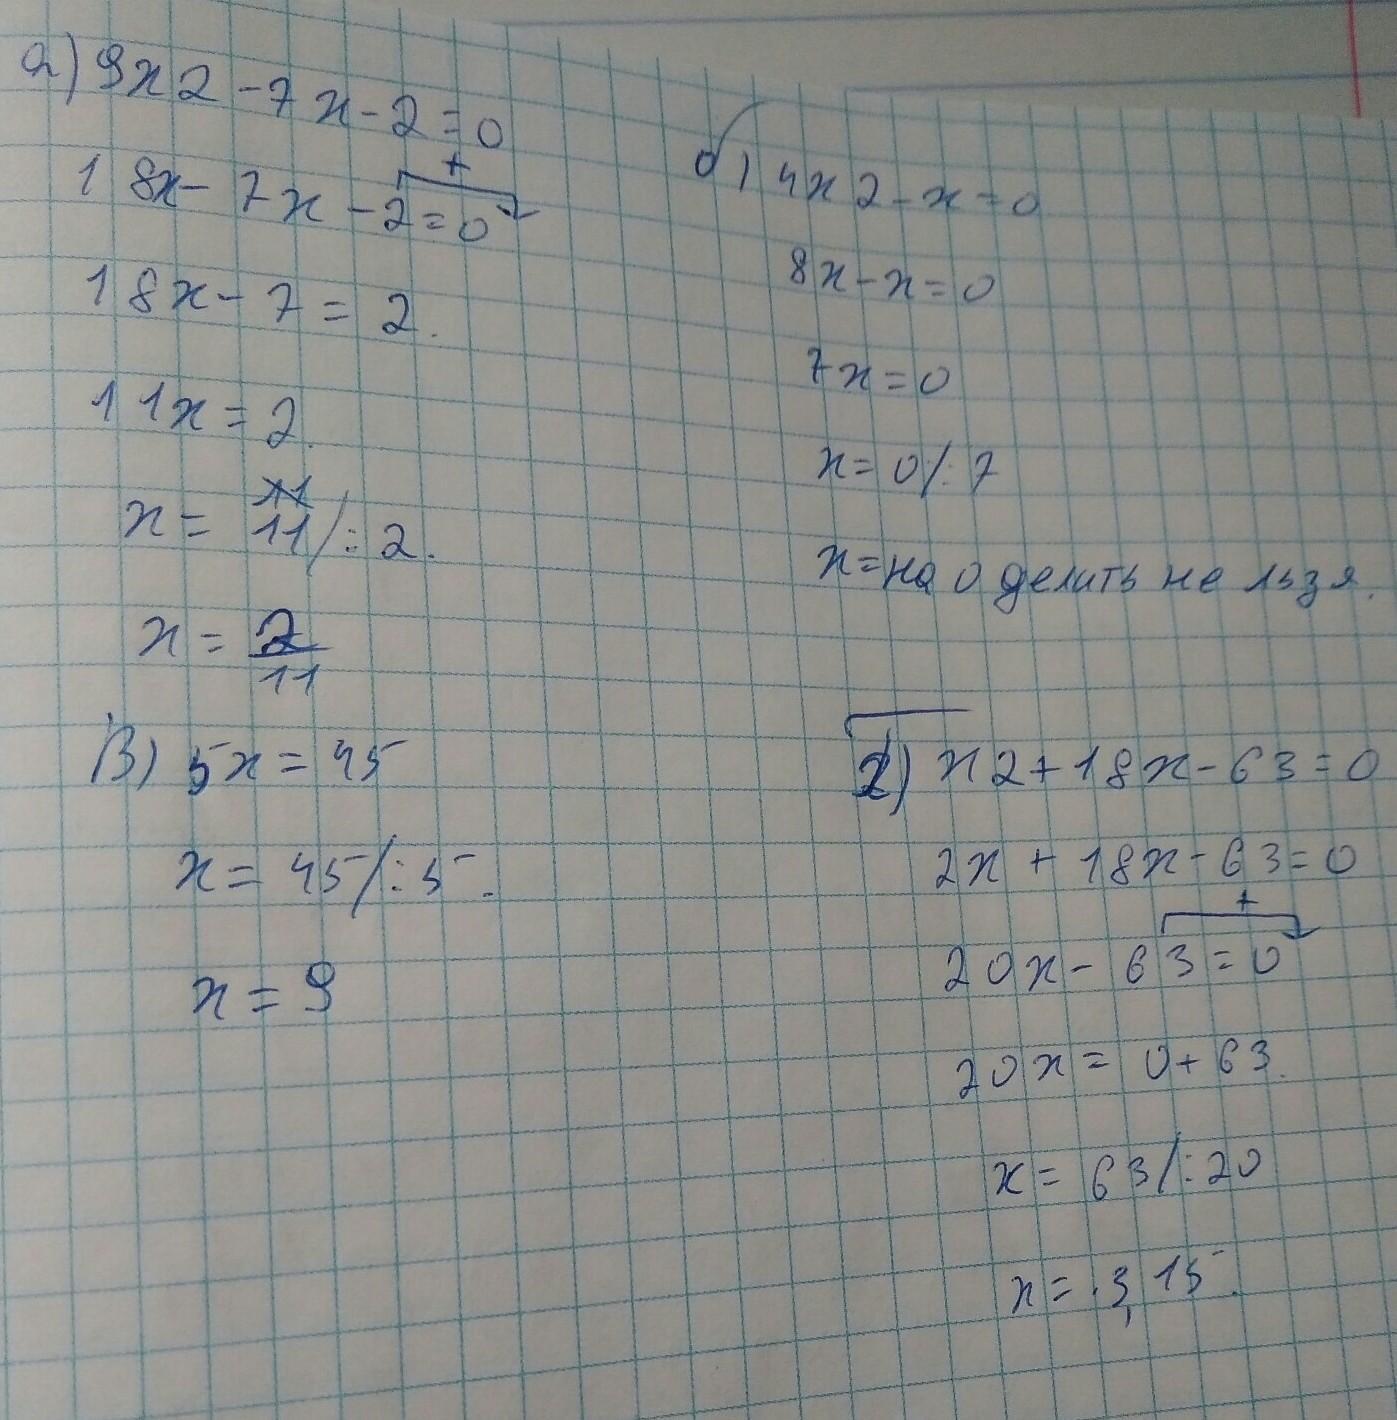 а) 9x2 - 7x - 2 = 0
+
18x - 7x - 2 = 0
18x - 7 = 2.
11x = 2.
x = 11/:2.
x = 2/11
б) 4x2 - x = 0
8x - x = 0
7x = 0
x = 0/:7
x = на 0 делить не льзя.
В) 5x = 45
x = 45/:5.
x = 9
2) x2 + 18x - 63 = 0
2x + 18x - 63 = 0
+
20x - 63 = 0
20x = 0 + 63.
x = 63/:20
x = 3,15.